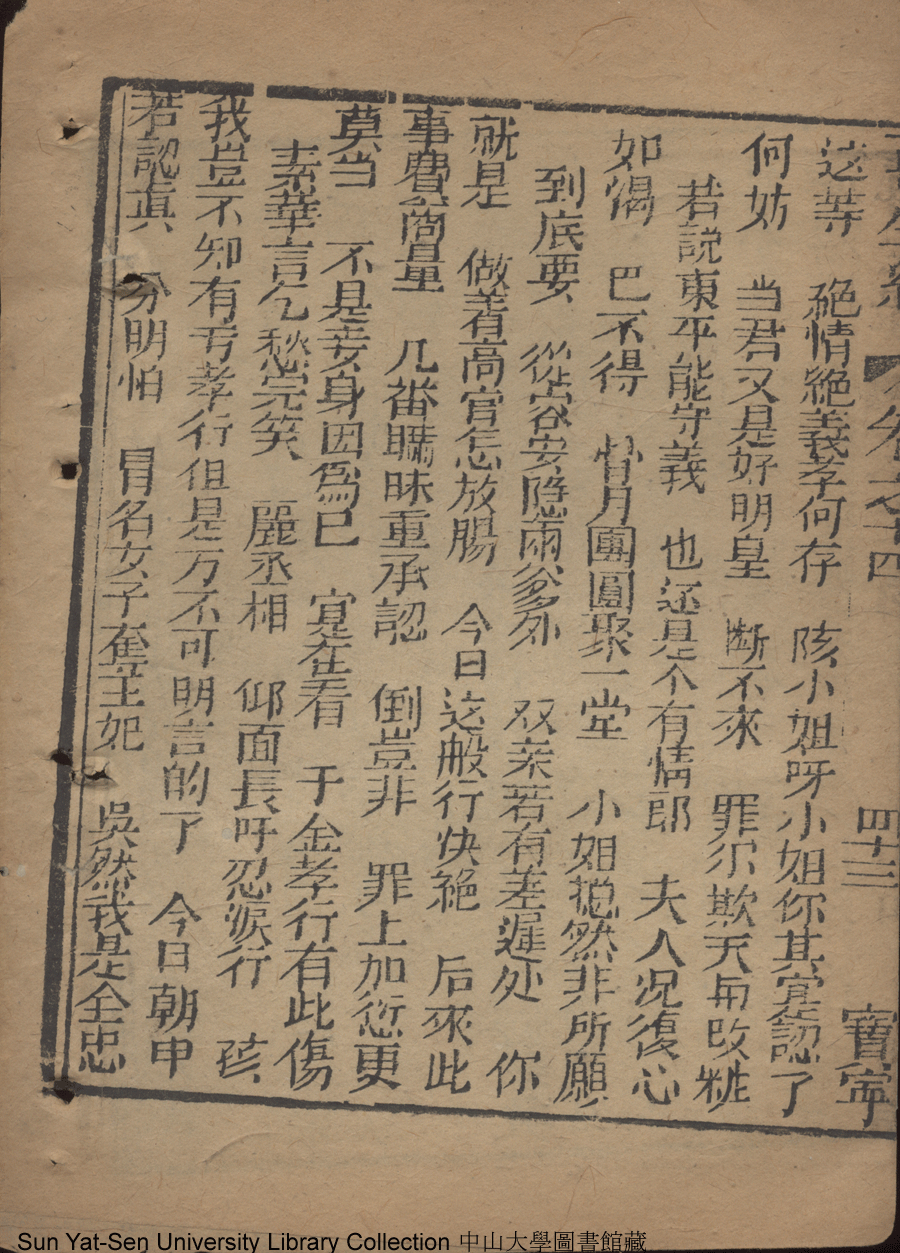 卷之十四 四十三 寶寧
这等 絶情絶義孝何存 陔小姐呀小姐你其寔認了
何妨 当君又是好明皇 断不來 罪尔欺天毎改粧
若説東平能守義 也还是个有情郎 夫人况復心
如渴 巴不得 花月團圓聚一堂 小姐搃然非所願
到底要 從容安隐兩爹外 双亲若有差遲处 你
就是 做着高官怎放腸 今日这般行快絶 后來此
事費商量 几番矇昧重承認 倒豈非 罪上加愆更
莫当 不是妾身因爲已 寔在看 于金孝行有此傷
素華言乞愁完笑 麗丞相 仰面長吁忍淚行 孩
我豈不知有亏孝行但是万不可明言的了 今日朝申
若認真 分明怕 冒名女子奎王妃 吳然我是全忠
Sun Yat-Sen University Library Collection 中山大學圖書館藏